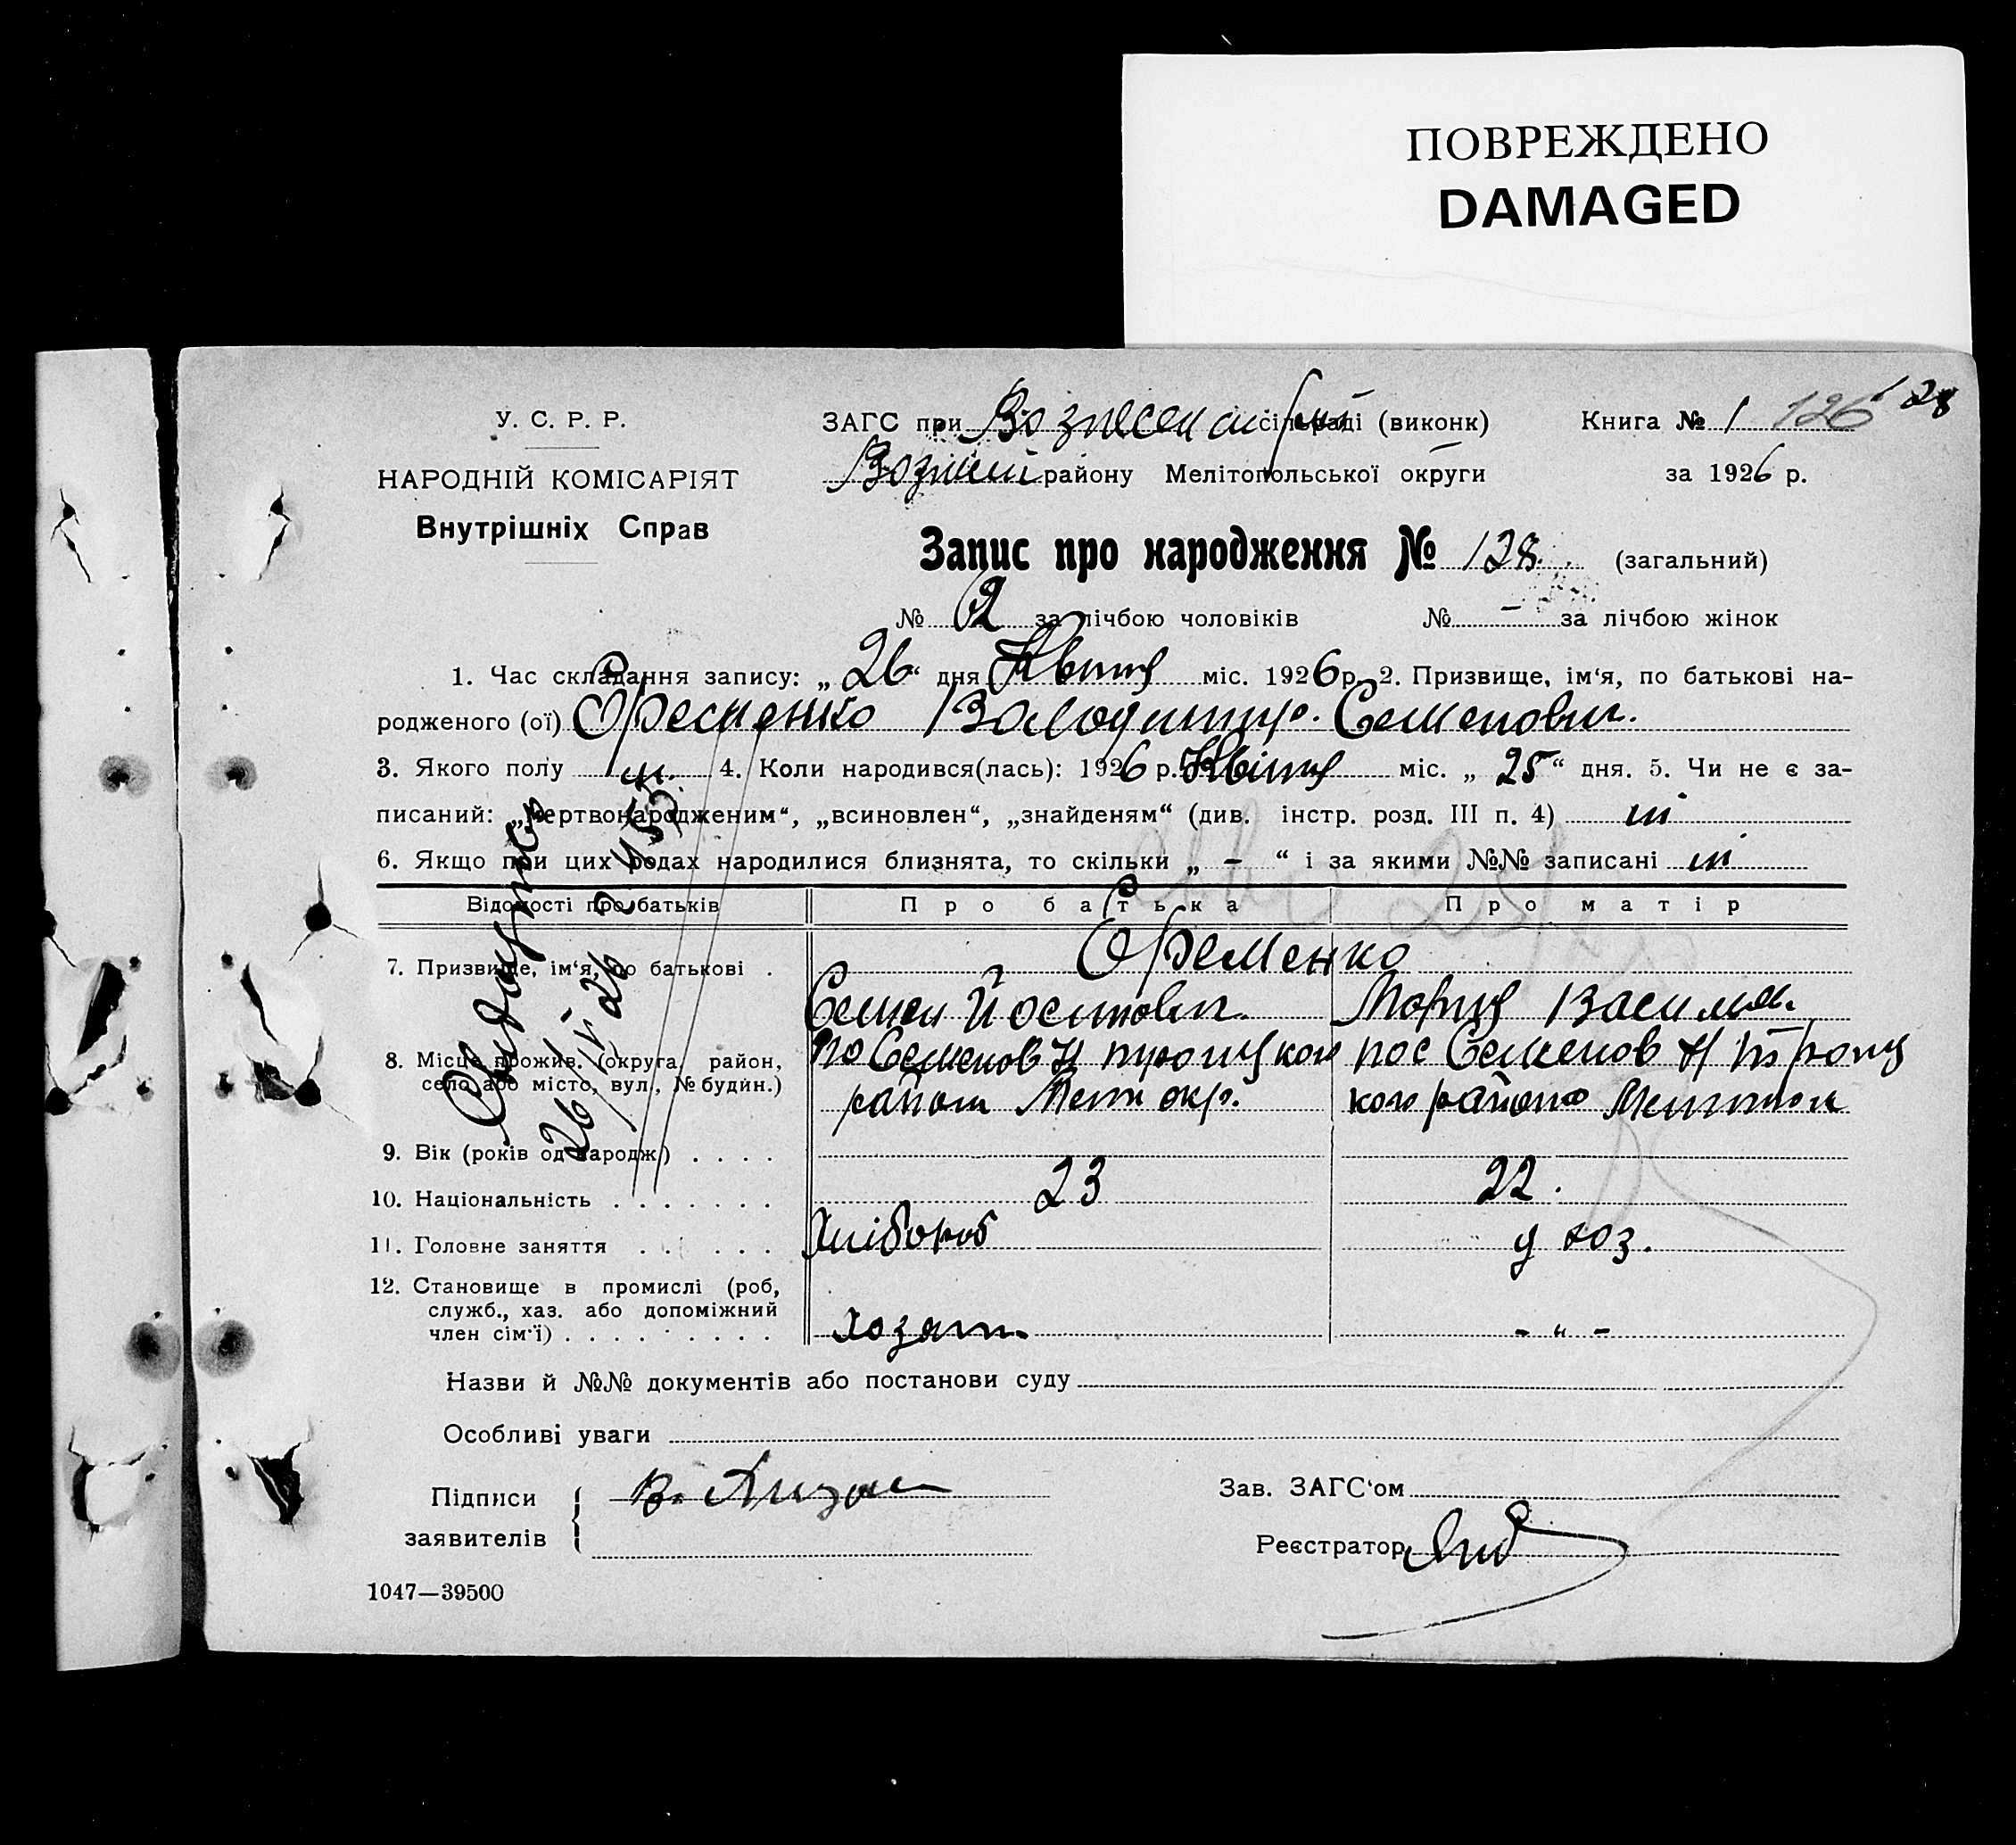 ПОВРЕЖДЕНО
DAMAGED
У. С. Р. Р.
НАРОДНІЙ КОМІСАРІЯТ
Внутрішніх Справ
ЗАГС при сільраді (виконк)
району Мелітопольської округи
Книга № 1 126 128
за 1926 р.
Запис про народження № 128. (загальний)
№ за лічбою чоловіків № - за лічбою жінок
1. Час складання запису: „26“ дня Квітня міс. 1926 р. 2. Призвище, ім‘я, по батькові на-
родженого (ої) Єременко Володимир. Семенович.
3. Якого полу ч. 4. Коли народився(лась): 1926 р. Квітня міс. „25“ дня. 5. Чи не є за-
писаний: „мертвонародженим“, „всиновлен“, „знайденям“ (див. інстр. розд. III п. 4) ні
6. Якщо при цих родах народилися близнята, то скільки „ - “ і за якими №№ записані ні
Відомості про батьків Про батька Про матір
7. Призвище, ім‘я, по батькові . Єременко
Семен Йосипович. Марія Василів.
8. Місце прожив. (округа, район,
село або місто, вул., № будин.)
Семенов Н Троицкого пос Семенов Н Троиц
району Мелит окр. кого району Мелитоп
9. Вік (років од народж.) . . . .
10. Національність . . . . . . . 23 22.
11. Головне заняття . . . . . Хлібороб у хоз.
12. Становище в промислі (роб,
служб., хаз. або допоміжний
член сім‘ї) . . . . . . . . . Хозяин - „ -
Назви й №№ документів або постанови суду
Особливі уваги
Підписи
заявителів
Зав. ЗАГС‘ом
Реєстратор
1047—39500
26/IV 26